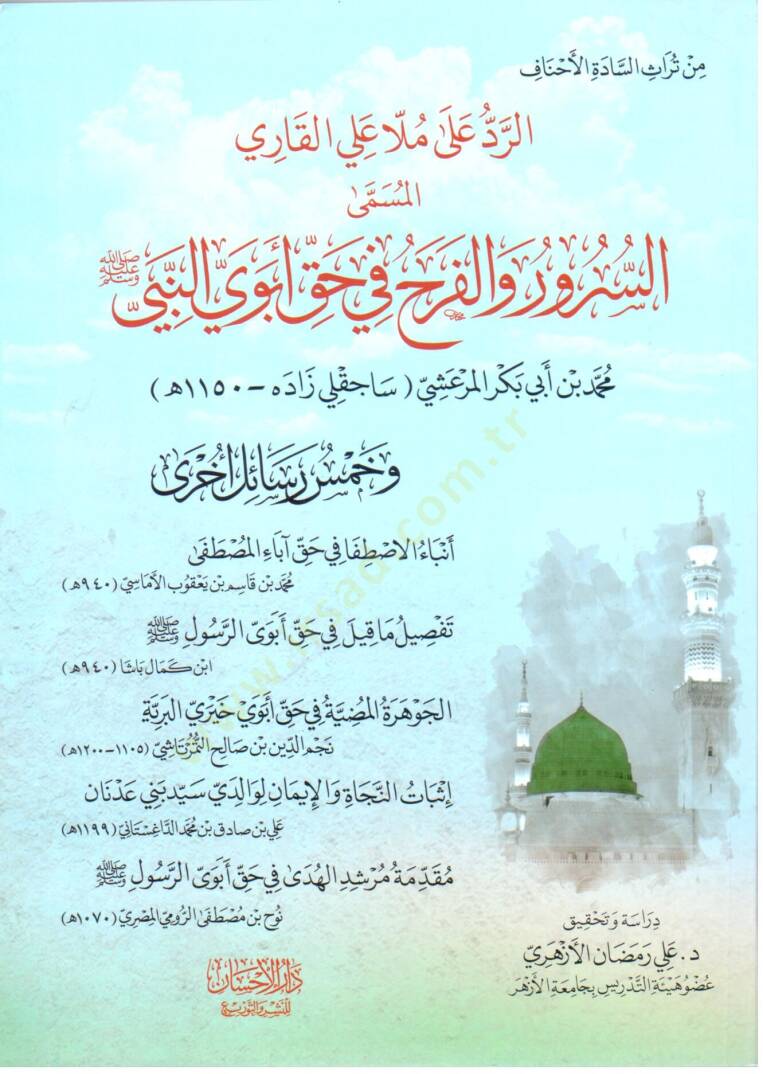 مِنْ تُرَاثِ السَّادَةِ الأَحْنَافِ
الرَّدُّ عَلَى مُلَّا عَلِي القَارِي
المُسَمَّى
السُّرُورُ وَالفَرَحُ فِي حَقِّ أَبَوَيِ النَّبِيِّ ﷺ
مُحَمَّد بْن أَبِي بَكْر المَرْعَشِيّ (سَاجَقْلِي زَادَه - ١١٥٠هـ)
وَخَمْسُ رَسَائِلَ أُخْرَى
أَنْبَاءُ الاصْطِفَا فِي حَقِّ آبَاءِ المُصْطَفَى
مُحَمَّد بْن قَاسِم بْن يَعْقُوب الأَمَاسِيّ (٩٤٠هـ)
تَفْصِيلُ مَا قِيلَ فِي حَقِّ أَبَوَىِ الرَّسُولِ ﷺ
ابْن كَمَال بَاشَا (٩٤٠هـ)
الجَوْهَرَةُ المُضِيَّةُ فِي حَقِّ أَبَوَيْ خَيْرِيِ البَرِيَّةِ
نَجْم الدِّين بْن صَالِح التُّمُرْتَاشِيّ (١١٠٥-١٢٠٠هـ)
إِثْبَاتُ النَّجَاةِ وَالإِيمَانِ لِوَالِدَيْ سَيِّدِ بَنِي عَدْنَان
عَلِي بْن صَادِق بْن مُحَمَّد الدَّاغِسْتَانِيّ (١١٩٩هـ)
مُقَدِّمَةُ مُرْشِدِ الهُدَى فِي حَقِّ أَبَوَىِ الرَّسُولِ ﷺ
نُوح بْن مُصْطَفَى الرُّومِيّ المِصْرِيّ (١٠٧٠هـ)
دِرَاسَة وَتَحْقِيق
د. عَلِي رَمَضَان الأَزْهَرِيّ
عُضْو هَيْئَة التَّدْرِيس بِجَامِعَة الأَزْهَر
دَارُ الإِحْسَان
لِلنَّشْرِ وَالتَّوْزِيع